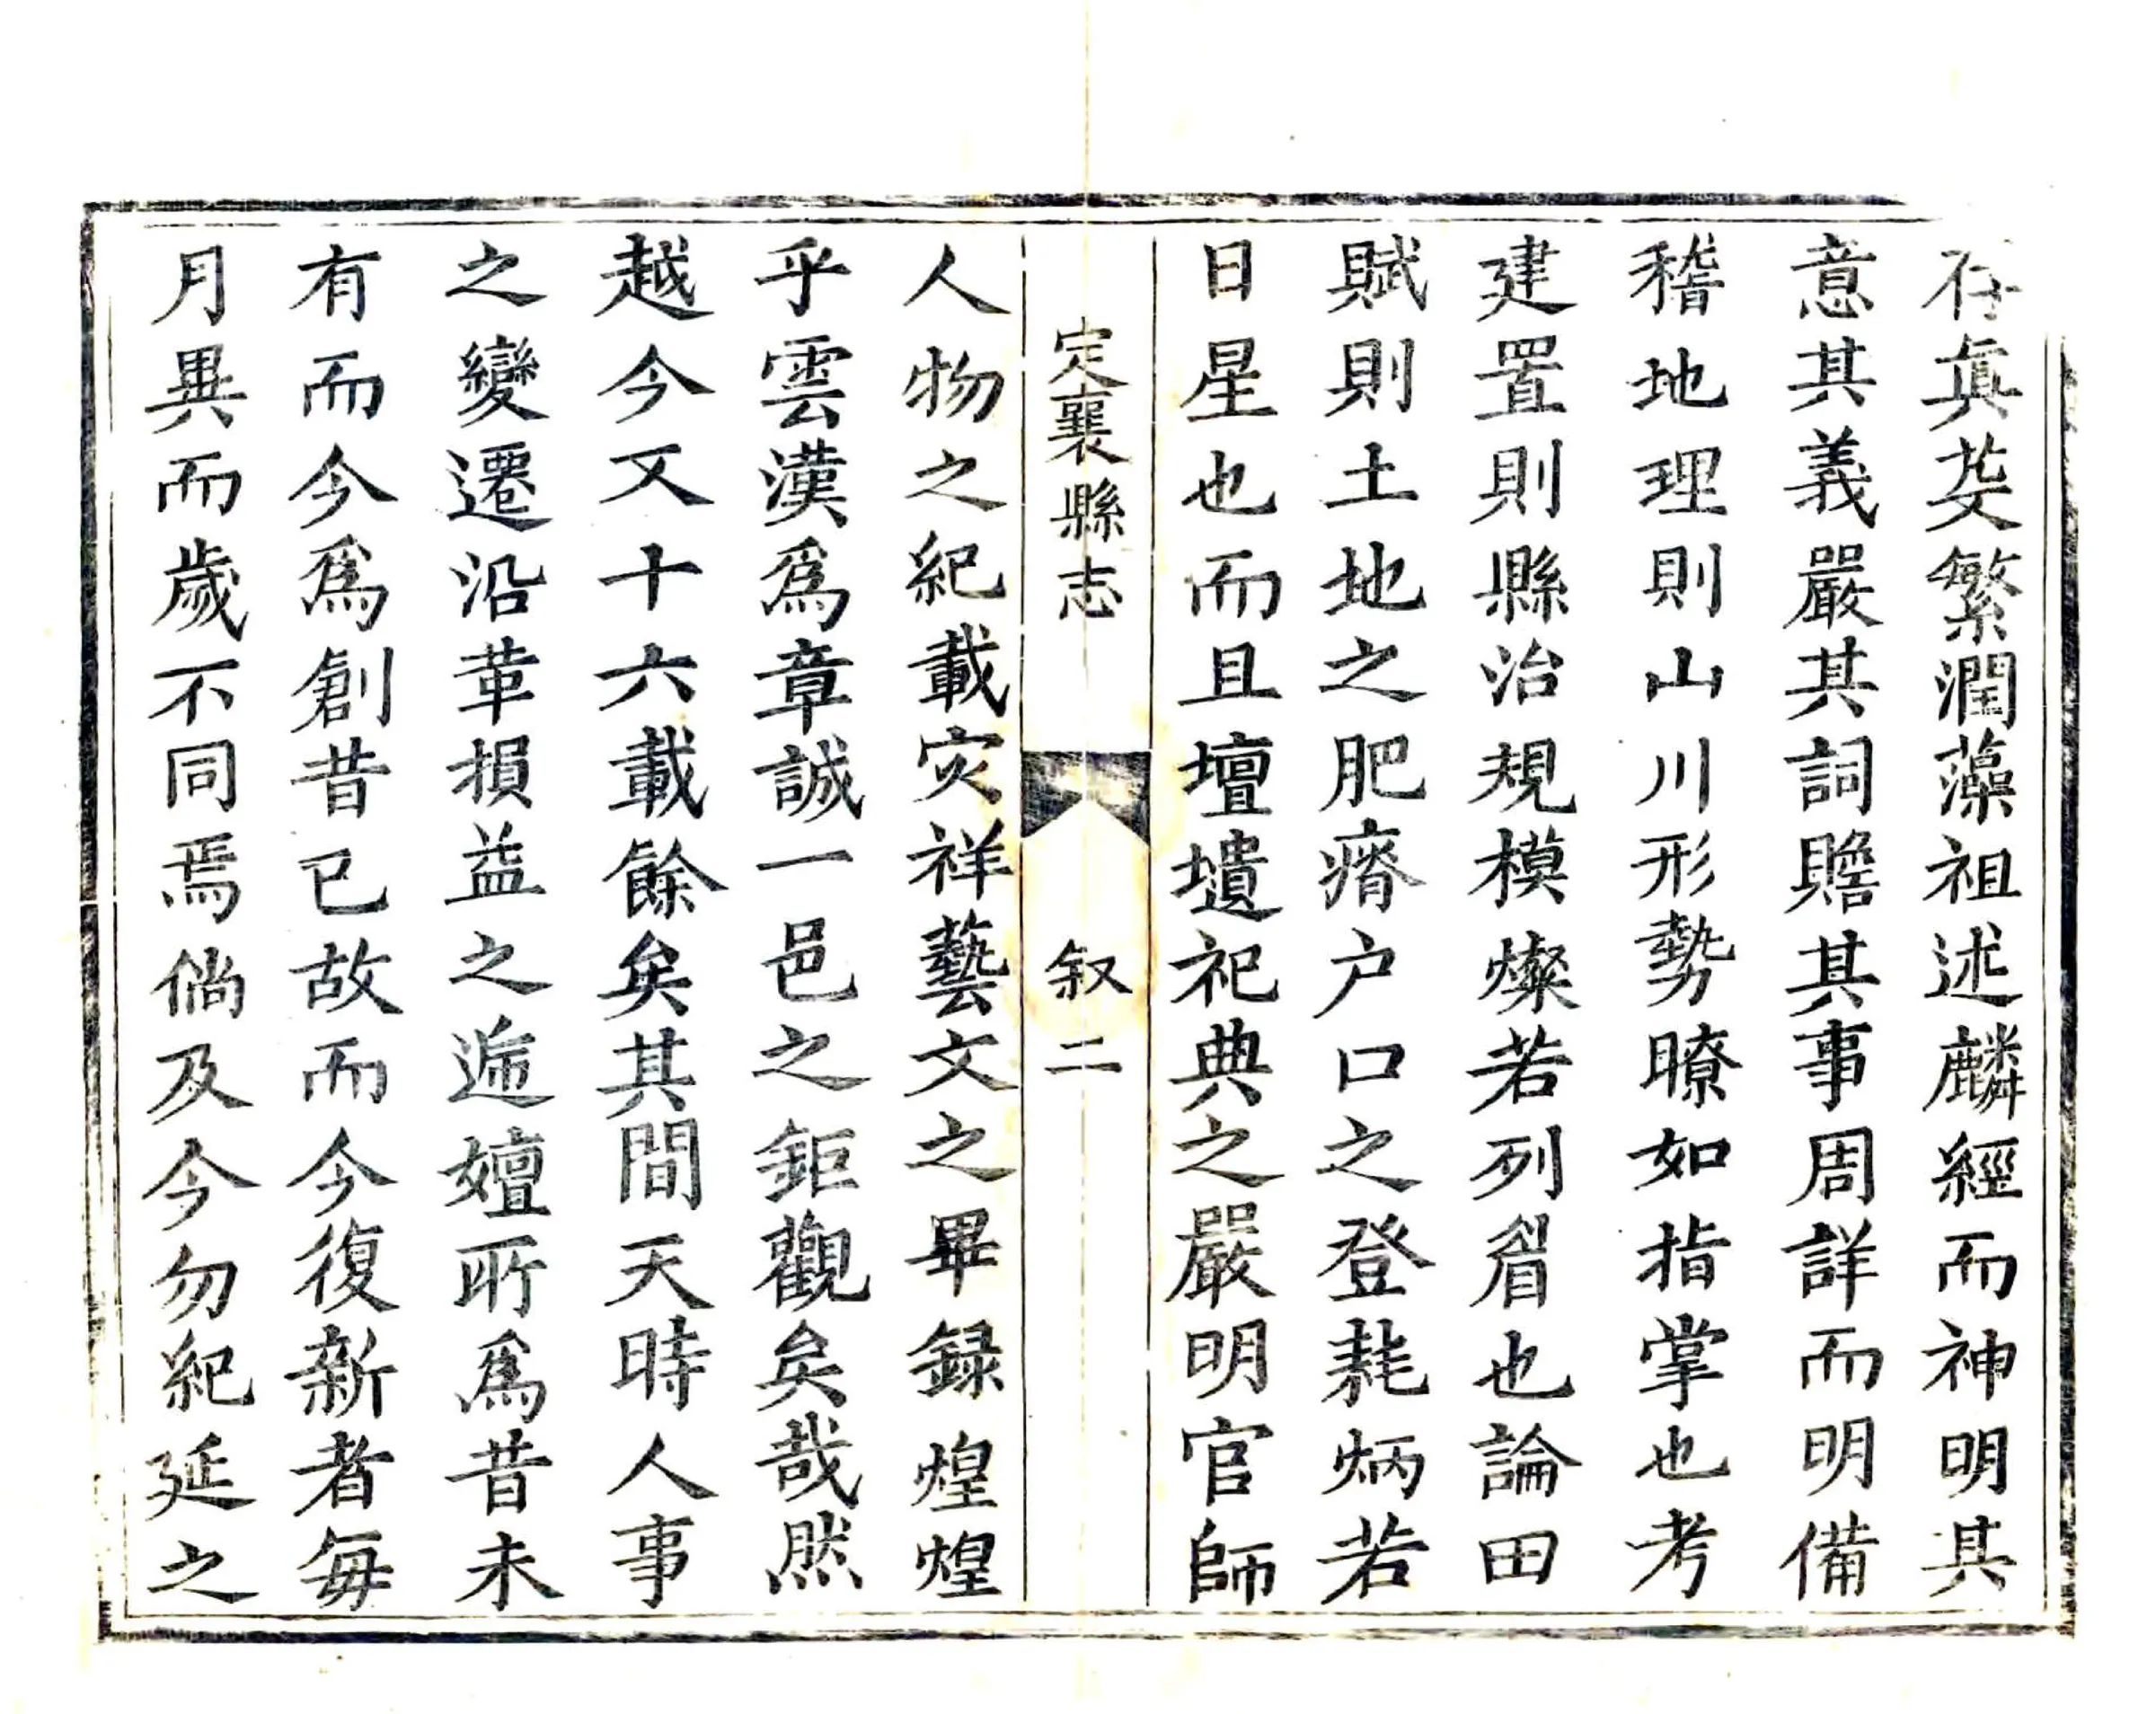 存眞芟繁潤藻祖述麟經而神明其
意其義嚴其詞贍其事周詳而明備
稽地理則山川形勢暸如指掌也考
建置則縣治規模燦若列眉也論田
賦則土地之肥瘠户口之登耗炳若
日星也而且壇壝祀典之嚴明官師
定襄縣志
叙
二
人物之紀載灾祥藝文之畢録煌煌
乎雲漢爲章誠一邑之鉅觀矣哉然
越今又十六載餘矣其間天時人事
之變遷沿革損益之遞嬗所爲昔未
有而今爲創昔已故而今復新者每
月異而歲不同焉倘及今勿紀延之